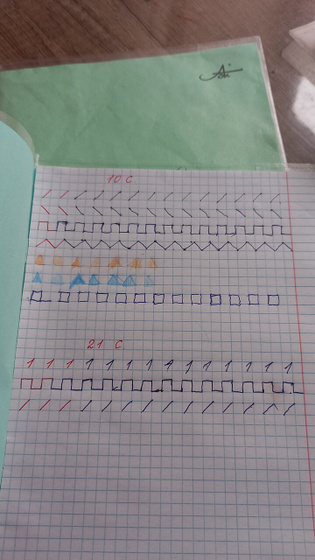 10 С
21 С
1 1 1 1 1 1 1 1 1 1 1 1 1 1